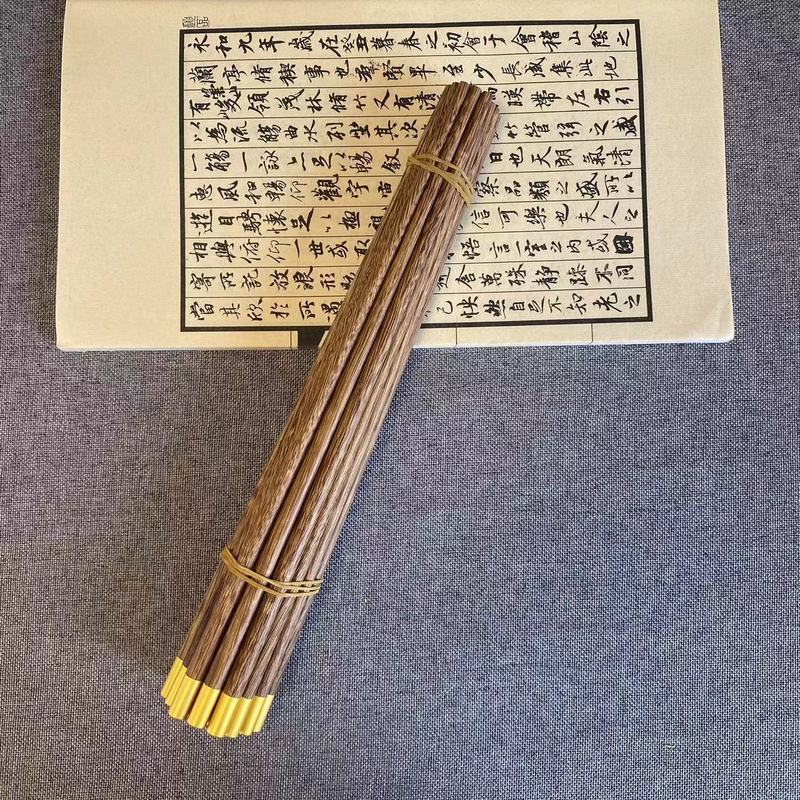 永和九年歲在癸丑暮春之初會于會稽山陰之
蘭亭脩稧事也羣賢畢至少長咸集此地
有崇山峻領茂林脩竹又有清 暎帶左右引
以為流觴曲水列坐其次 竹管弦之盛
一觴一詠亦足以暢敘 日也天朗氣清
惠風和暢仰觀宇宙 察品類之盛所以
遊目騁懷足以極視 信可樂也夫人之
相與俯仰一世或取 悟言一室之內或因
寄所託放浪形 舍萬殊靜躁不同
當其欣於所遇 己快然自足不知老之